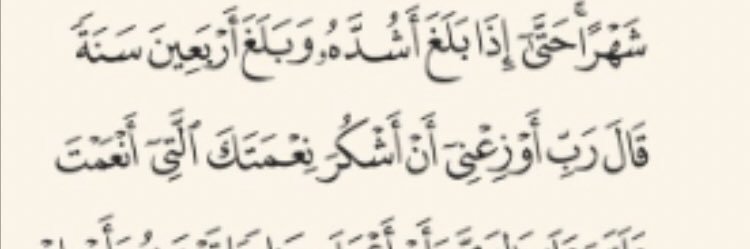 شَهْرًا ۚ حَتَّىٰٓ إِذَا بَلَغَ أَشُدَّهُۥ وَبَلَغَ أَرْبَعِينَ سَنَةً
قَالَ رَبِّ أَوْزِعْنِىٓ أَنْ أَشْكُرَ نِعْمَتَكَ ٱلَّتِىٓ أَنْعَمْتَ